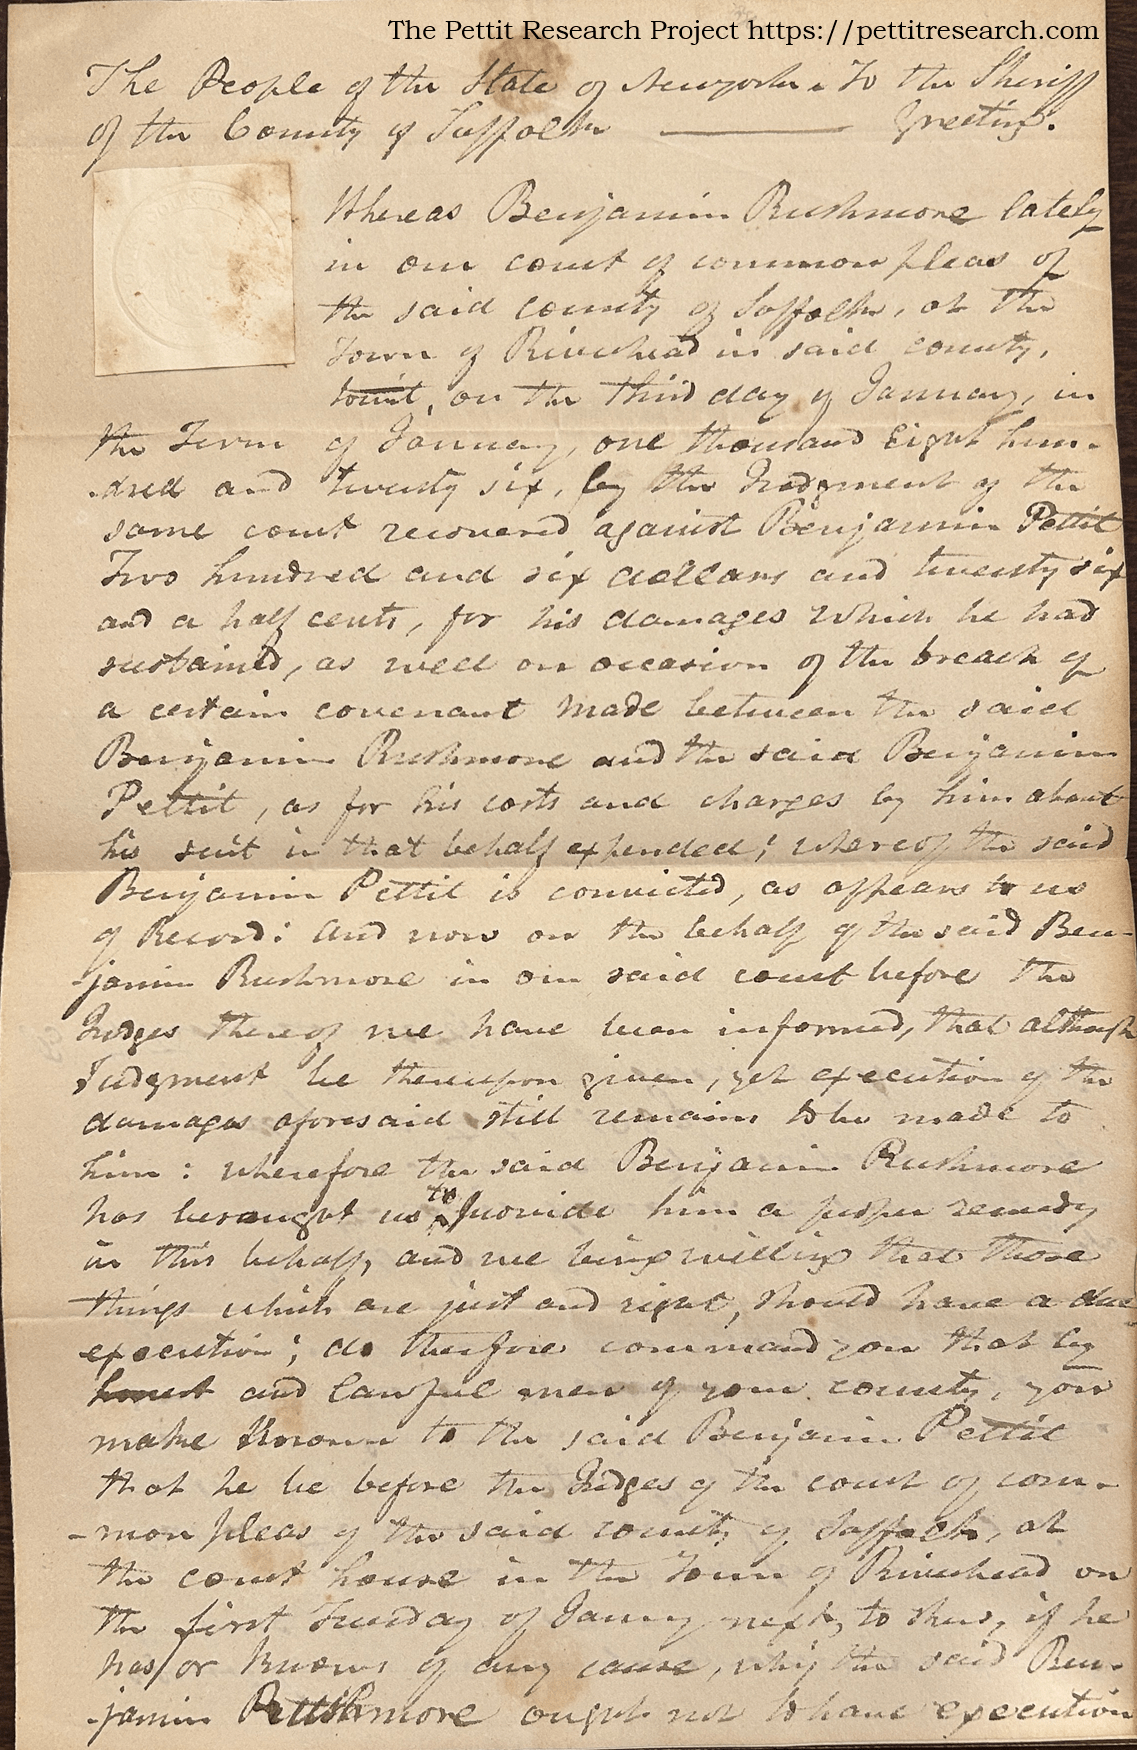 The Pettit Research Project https://pettitresearch.com
The People of the State of Newyork. To the Sheriff
of the County of Suffolk Greeting.
Whereas Benjamin Rushmore lately
in our court of common pleas of
the said county of Suffolk, at the
Town of Riverhead in said county,
towit, on the third day of January, in
the Term of January, one thousand Eight hun-
-dred and twenty six, by the Judgment of the
same court recovered against Benjamin Pettit
Two hundred and six dollars and twenty six
and a half cents, for his damages which he had
sustained, as well on occasion of the breach of
a certain covenant made between the said
Benjamin Rushmore and the said Benjamin
Pettit, as for his costs and charges by him about
his suit in that behalf expended; whereof the said
Benjamin Pettit is convicted, as appears to us
of Record: and now on the behalf of the said Ben-
-jamin Rushmore in our said court before the
Judges thereof we have been informed, that although
Judgment be thereupon given, yet execution of the
damages aforesaid still remains to be made to
him: wherefore the said Benjamin Rushmore
has besought us to provide him a proper remedy
in this behalf, and we being willing that those
things which are just and right, should have a due
execution; do therefore command you that by
honest and lawful men of your county, you
make known to the said Benjamin Pettit
that he be before the Judges of the court of com-
-mon pleas of the said county of Suffolk, at
the court house in the Town of Riverhead on
the first Tuesday of Janury next, to shew, if he
has/or knows of any cause, why the said Ben-
-jamin Rushmore ought not to have execution